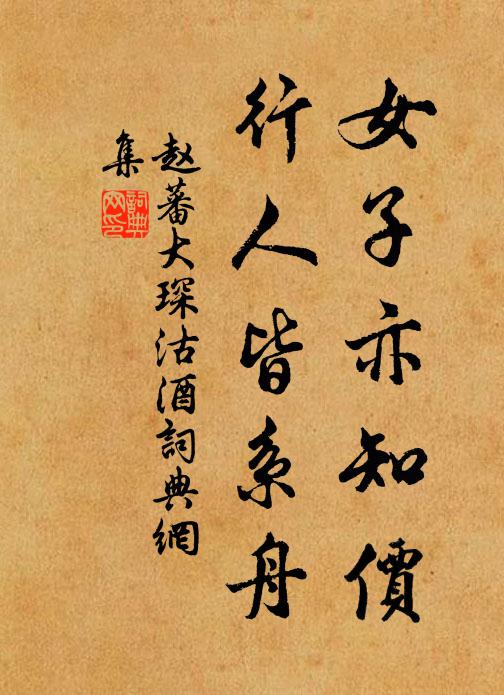 女子亦知價
行人皆系舟
赵蕃大琛沽酒詞典網
集
詞典網印